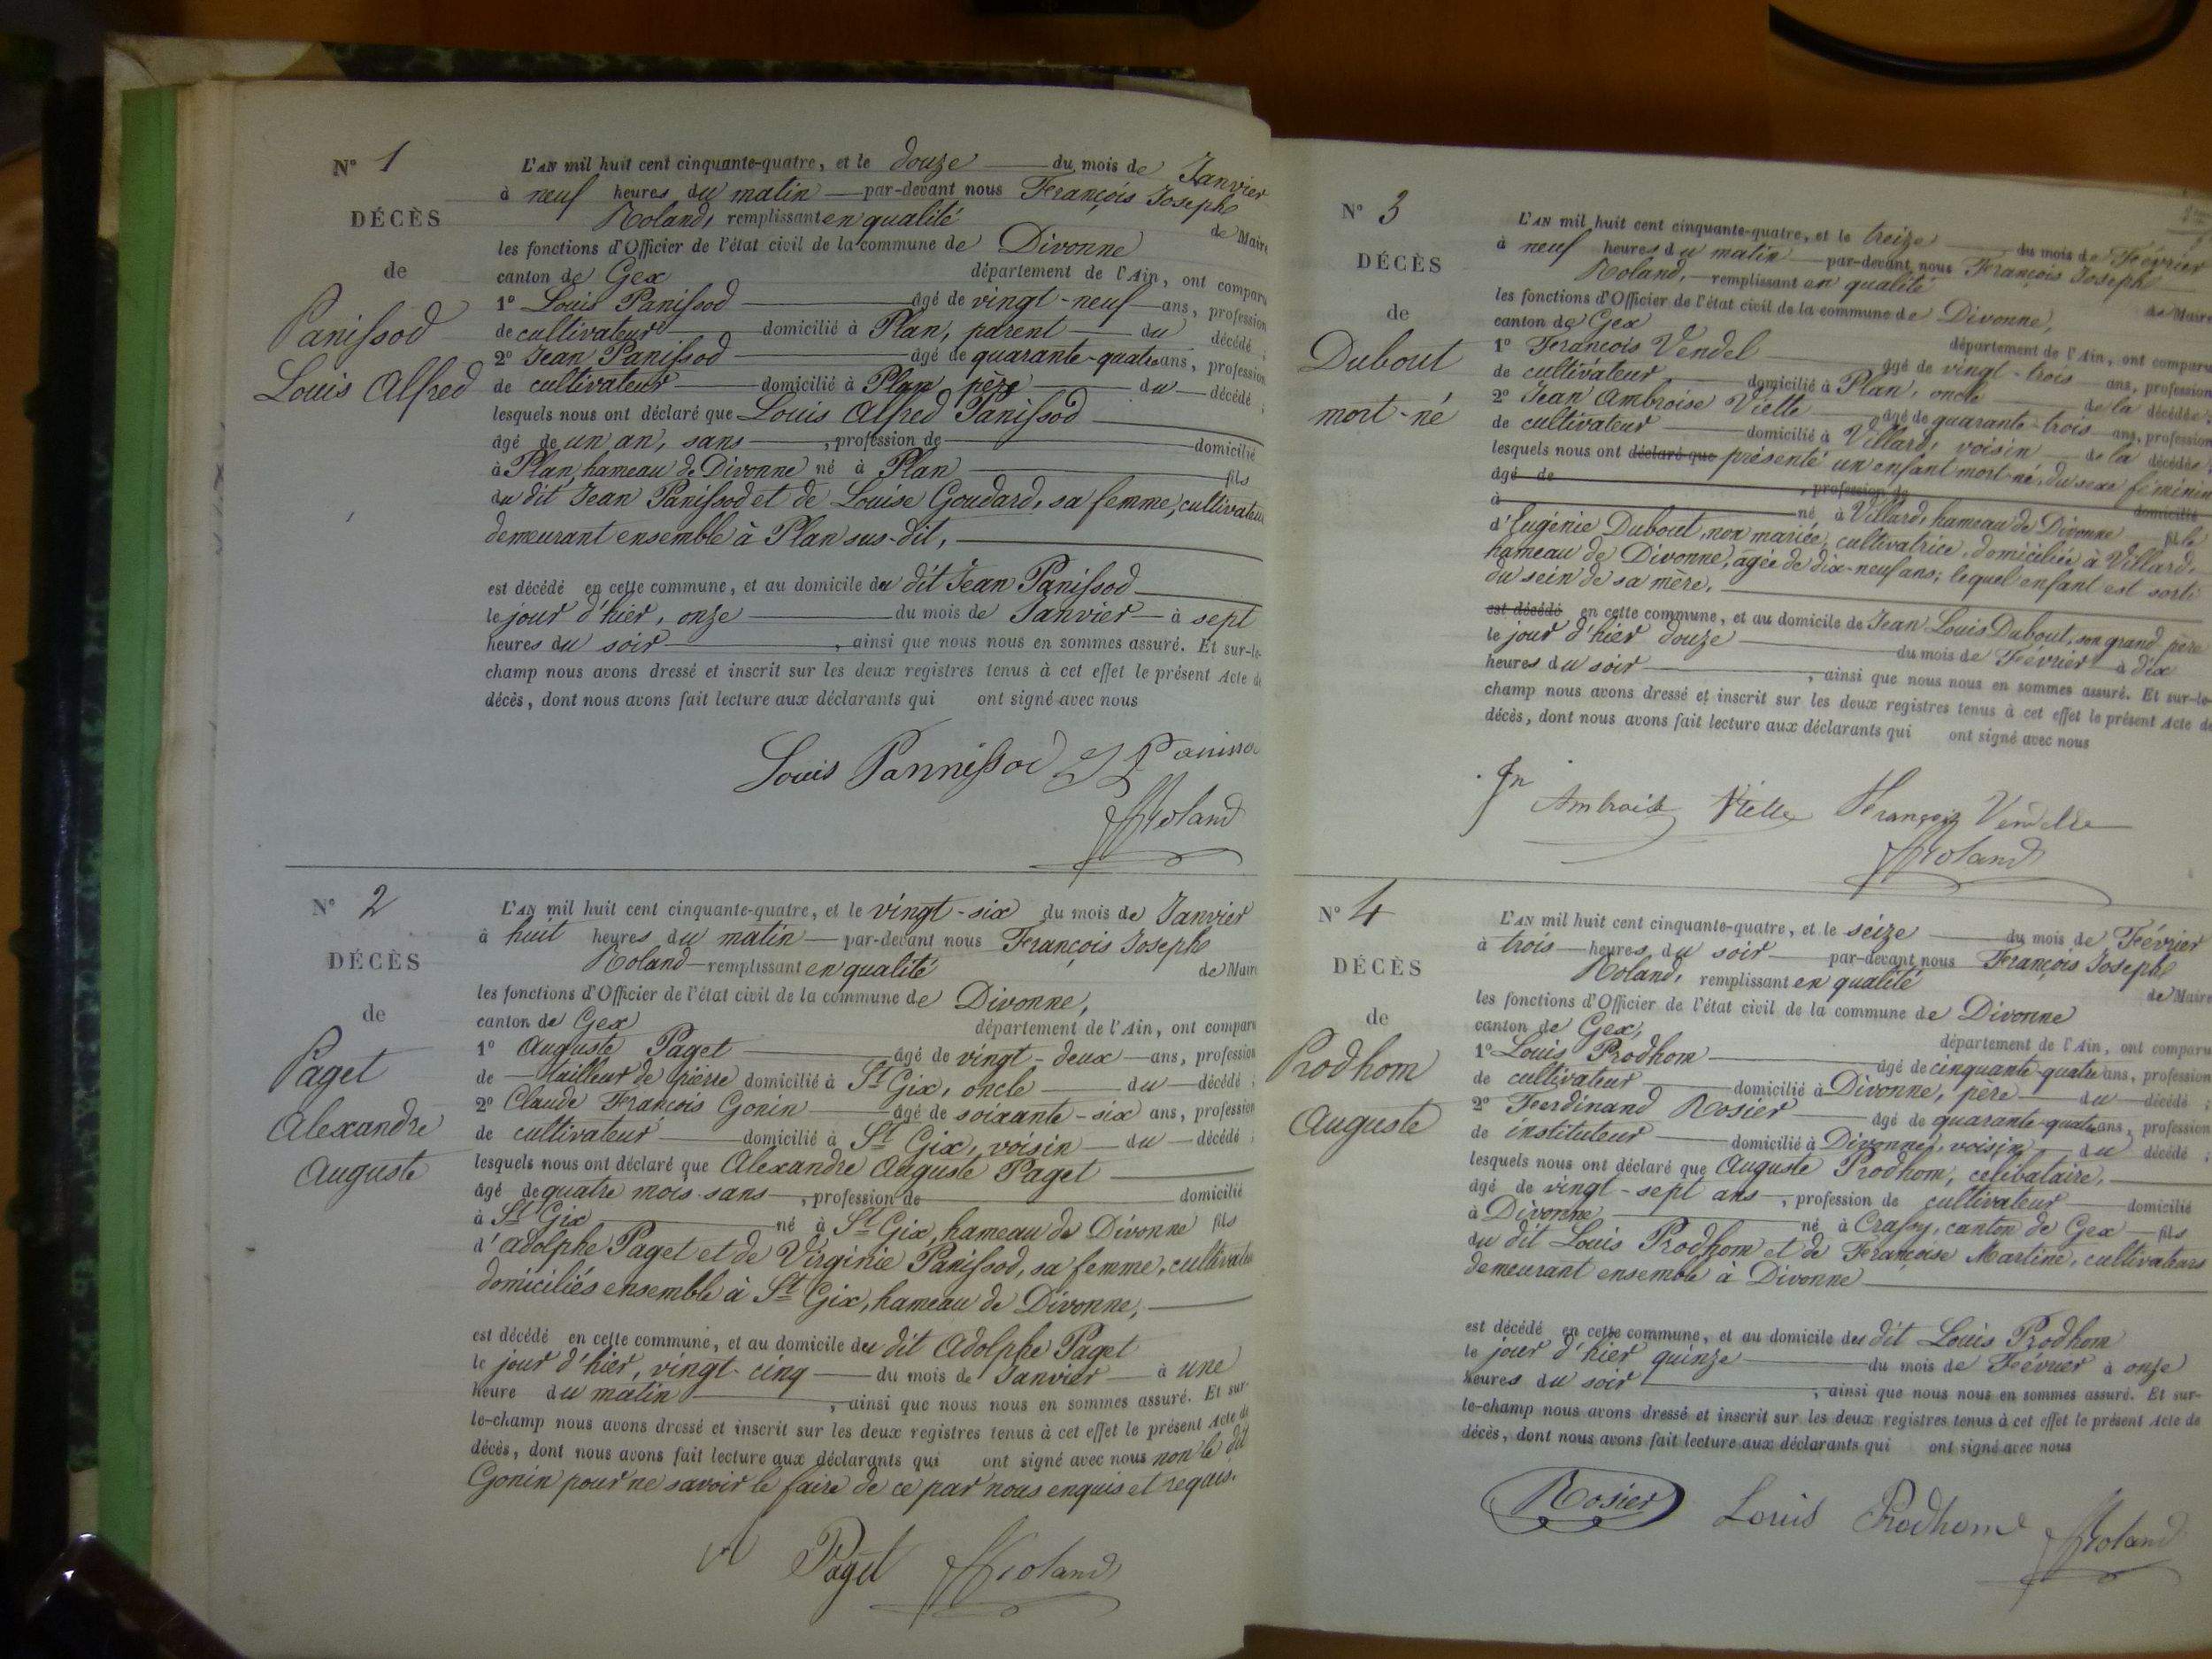 N° 1
DÉCÈS
de
Panissod
Louis Alfred
L'AN mil huit cent cinquante-quatre, et le douze du mois de Janvier
à neuf heures du matin par-devant nous François Joseph
Roland, remplissant en qualité de Maire
les fonctions d'Officier de l'état civil de la commune de Divonne
canton de Gex département de l'Ain, ont comparu
1° Louis Panissod âgé de vingt-neuf ans, profession
de cultivateur domicilié à Plan, parent du décédé ;
2° Jean Panissod âgé de quarante-quatre ans, profession
de cultivateur domicilié à Plan père du décédé ;
lesquels nous ont déclaré que Louis Alfred Panissod
âgé de un an, sans , profession de domicilié
à Plan, hameau de Divonne né à Plan fils
du dit Jean Panissod et de Louise Goudard, sa femme, cultivateurs
demeurant ensemble à Plan sus-dit,
est décédé en cette commune, et au domicile du dit Jean Panissod
le jour d'hier, onze du mois de Janvier à sept
heures du soir , ainsi que nous nous en sommes assuré. Et sur-le-
champ nous avons dressé et inscrit sur les deux registres tenus à cet effet le présent Acte de
décès, dont nous avons fait lecture aux déclarants qui ont signé avec nous
Louis Pannissod
Roland
N° 2
DÉCÈS
de
Paget
Alexandre
Auguste
L'AN mil huit cent cinquante-quatre, et le vingt-six du mois de Janvier
à huit heures du matin par-devant nous François Joseph
Roland remplissant en qualité de Maire
les fonctions d'Officier de l'état civil de la commune de Divonne,
canton de Gex département de l'Ain, ont comparu
1° Auguste Paget âgé de vingt-deux ans, profession
de tailleur de pierre domicilié à St Gix, oncle du décédé ;
2° Claude François Gonin âgé de soixante-six ans, profession
de cultivateur domicilié à St Gix, voisin du décédé ;
lesquels nous ont déclaré que Alexandre Auguste Paget
âgé de quatre mois sans , profession de domicilié
à St Gix né à St Gix, hameau de Divonne fils
d'Adolphe Paget et de Virginie Panissod, sa femme, cultivateurs
domiciliés ensemble à St Gix, hameau de Divonne,
est décédé en cette commune, et au domicile du dit Adolphe Paget
le jour d'hier, vingt-cinq du mois de Janvier à une
heure du matin , ainsi que nous nous en sommes assuré. Et sur-
le-champ nous avons dressé et inscrit sur les deux registres tenus à cet effet le présent Acte de
décès, dont nous avons fait lecture aux déclarants qui ont signé avec nous non le dit
Gonin pour ne savoir le faire de ce par nous enquis et requis.
Paget Roland
N° 3
DÉCÈS
de
Dubout
mort-né
L'AN mil huit cent cinquante-quatre, et le treize du mois de Février
à neuf heures du matin par-devant nous François Joseph
Roland, remplissant en qualité de Maire
les fonctions d'Officier de l'état civil de la commune de Divonne,
canton de Gex département de l'Ain, ont comparu
1° François Vendel âgé de vingt-trois ans, profession
de cultivateur domicilié à Plan, oncle de la décédée ;
2° Jean Ambroise Vielle âgé de quarante-trois ans, profession
de cultivateur domicilié à Villard, voisin de la décédée ;
lesquels nous ont déclaré que présenté un enfant mort-né, du sexe féminin
âgé de , profession de domicilié
à né à Villard, hameau de Divonne fils
d'Eugénie Dubout, non mariée, cultivatrice, domiciliée à Villard,
hameau de Divonne, agée de dix-neuf ans; lequel enfant est sorti
du sein de sa mère,
est décédé en cette commune, et au domicile de Jean Louis Dubout, son grand père
le jour d'hier douze du mois de Février à dix
heures du soir , ainsi que nous nous en sommes assuré. Et sur-le-
champ nous avons dressé et inscrit sur les deux registres tenus à cet effet le présent Acte de
décès, dont nous avons fait lecture aux déclarants qui ont signé avec nous
Jn Ambroise Vielle François Vendelle
Roland
N° 4
DÉCÈS
de
Prodhom
Auguste
L'AN mil huit cent cinquante-quatre, et le seize du mois de Février
à trois heures du soir par-devant nous François Joseph
Roland, remplissant en qualité de Maire
les fonctions d'Officier de l'état civil de la commune de Divonne
canton de Gex, département de l'Ain, ont comparu
1° Louis Prodhom âgé de cinquante-quatre ans, profession
de cultivateur domicilié à Divonne, père du décédé ;
2° Ferdinand Rosier âgé de quarante-quatre ans, profession
de instituteur domicilié à Divonne, voisin du décédé ;
lesquels nous ont déclaré que Auguste Prodhom, célibataire,
âgé de vingt-sept ans , profession de cultivateur domicilié
à Divonne né à Crassy, canton de Gex fils
du dit Louis Prodhom et de Françoise Martine, cultivateurs
demeurant ensemble à Divonne
est décédé en cette commune, et au domicile du dit Louis Prodhom
le jour d'hier quinze du mois de Février à onze
heures du soir , ainsi que nous nous en sommes assuré. Et sur-
le-champ nous avons dressé et inscrit sur les deux registres tenus à cet effet le présent Acte de
décès, dont nous avons fait lecture aux déclarants qui ont signé avec nous
Rosier Louis Prodhom Roland